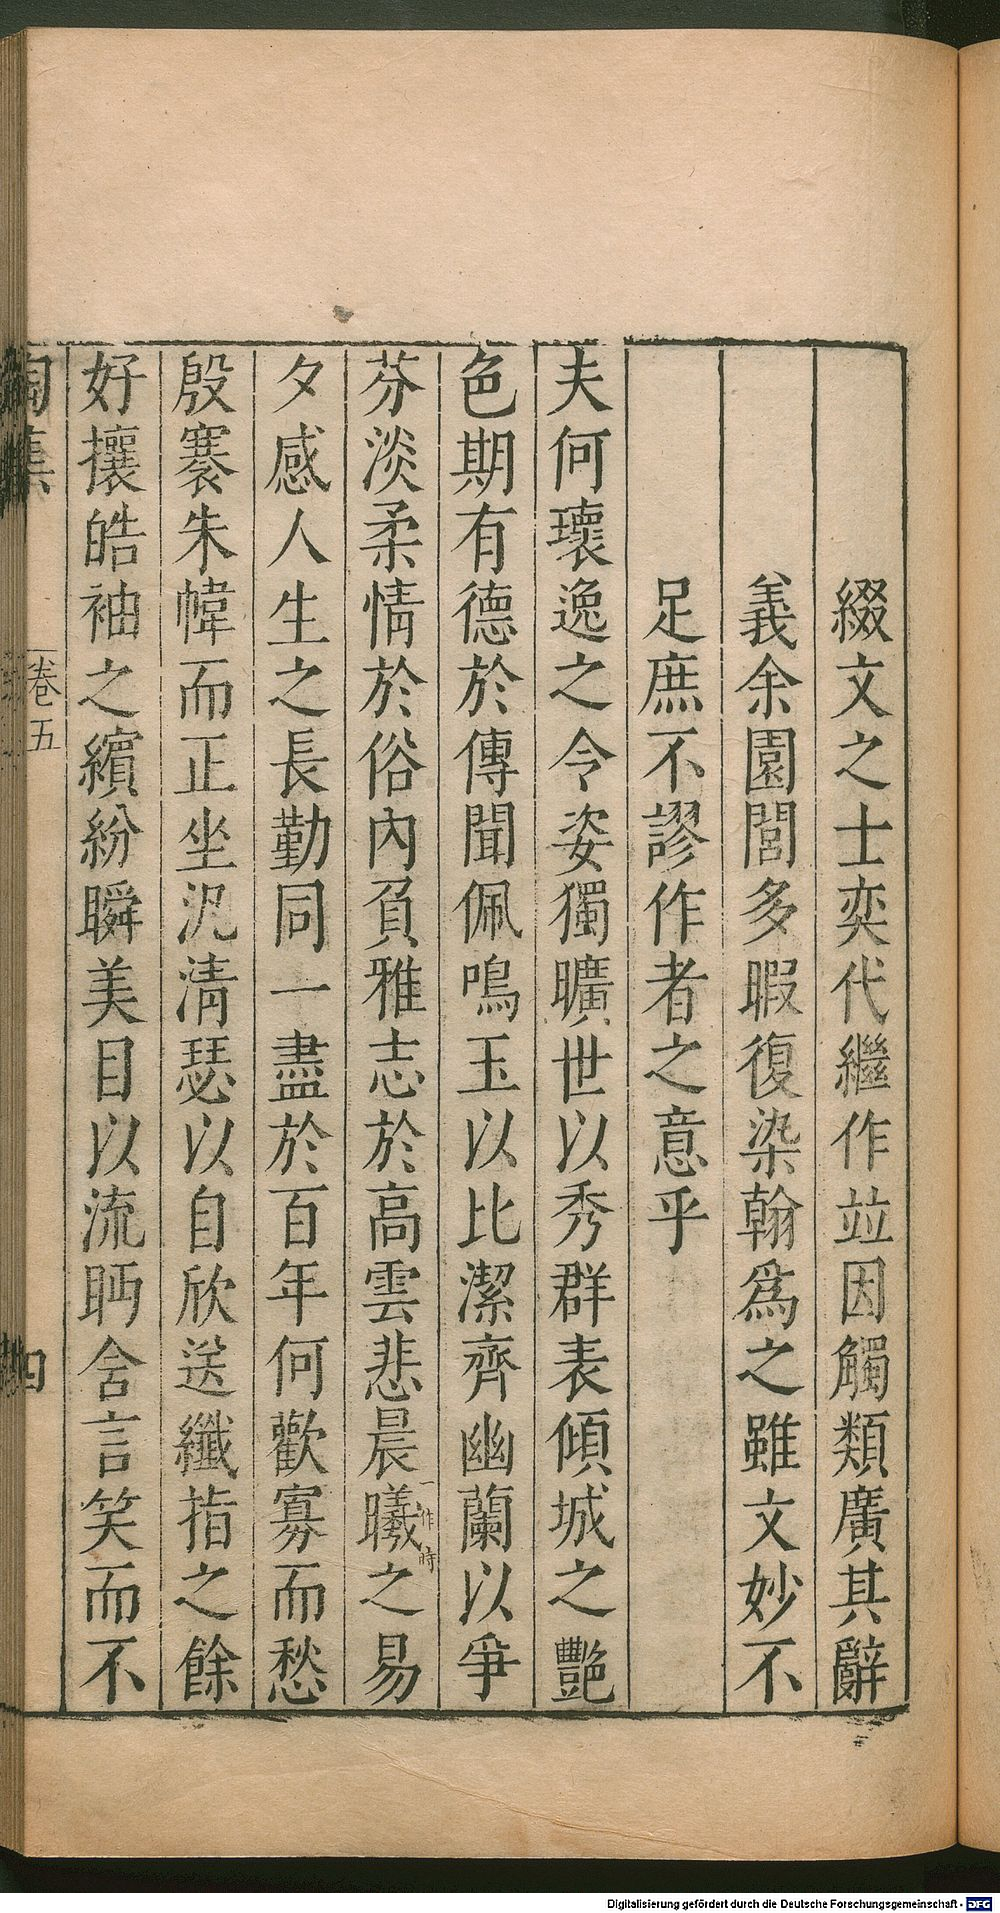 綴文之士奕代繼作竝因觸類廣其辭
義余園閭多暇復染翰爲之雖文妙不
足庶不謬作者之意乎
夫何瓌逸之令姿獨曠世以秀群表傾城之艷
色期有德於傳聞佩鳴玉以比潔齊幽蘭以爭
芬淡柔情於俗內負雅志於高雲悲晨曦一作時之易
夕感人生之長勤同一盡於百年何歡寡而愁
殷褰朱幃而正坐汎淸瑟以自欣送纖指之餘
好攘皓袖之繽紛瞬美目以流眄含言笑而不
陶集
卷五
四
Digitalisierung gefördert durch die Deutsche Forschungsgemeinschaft - DFG